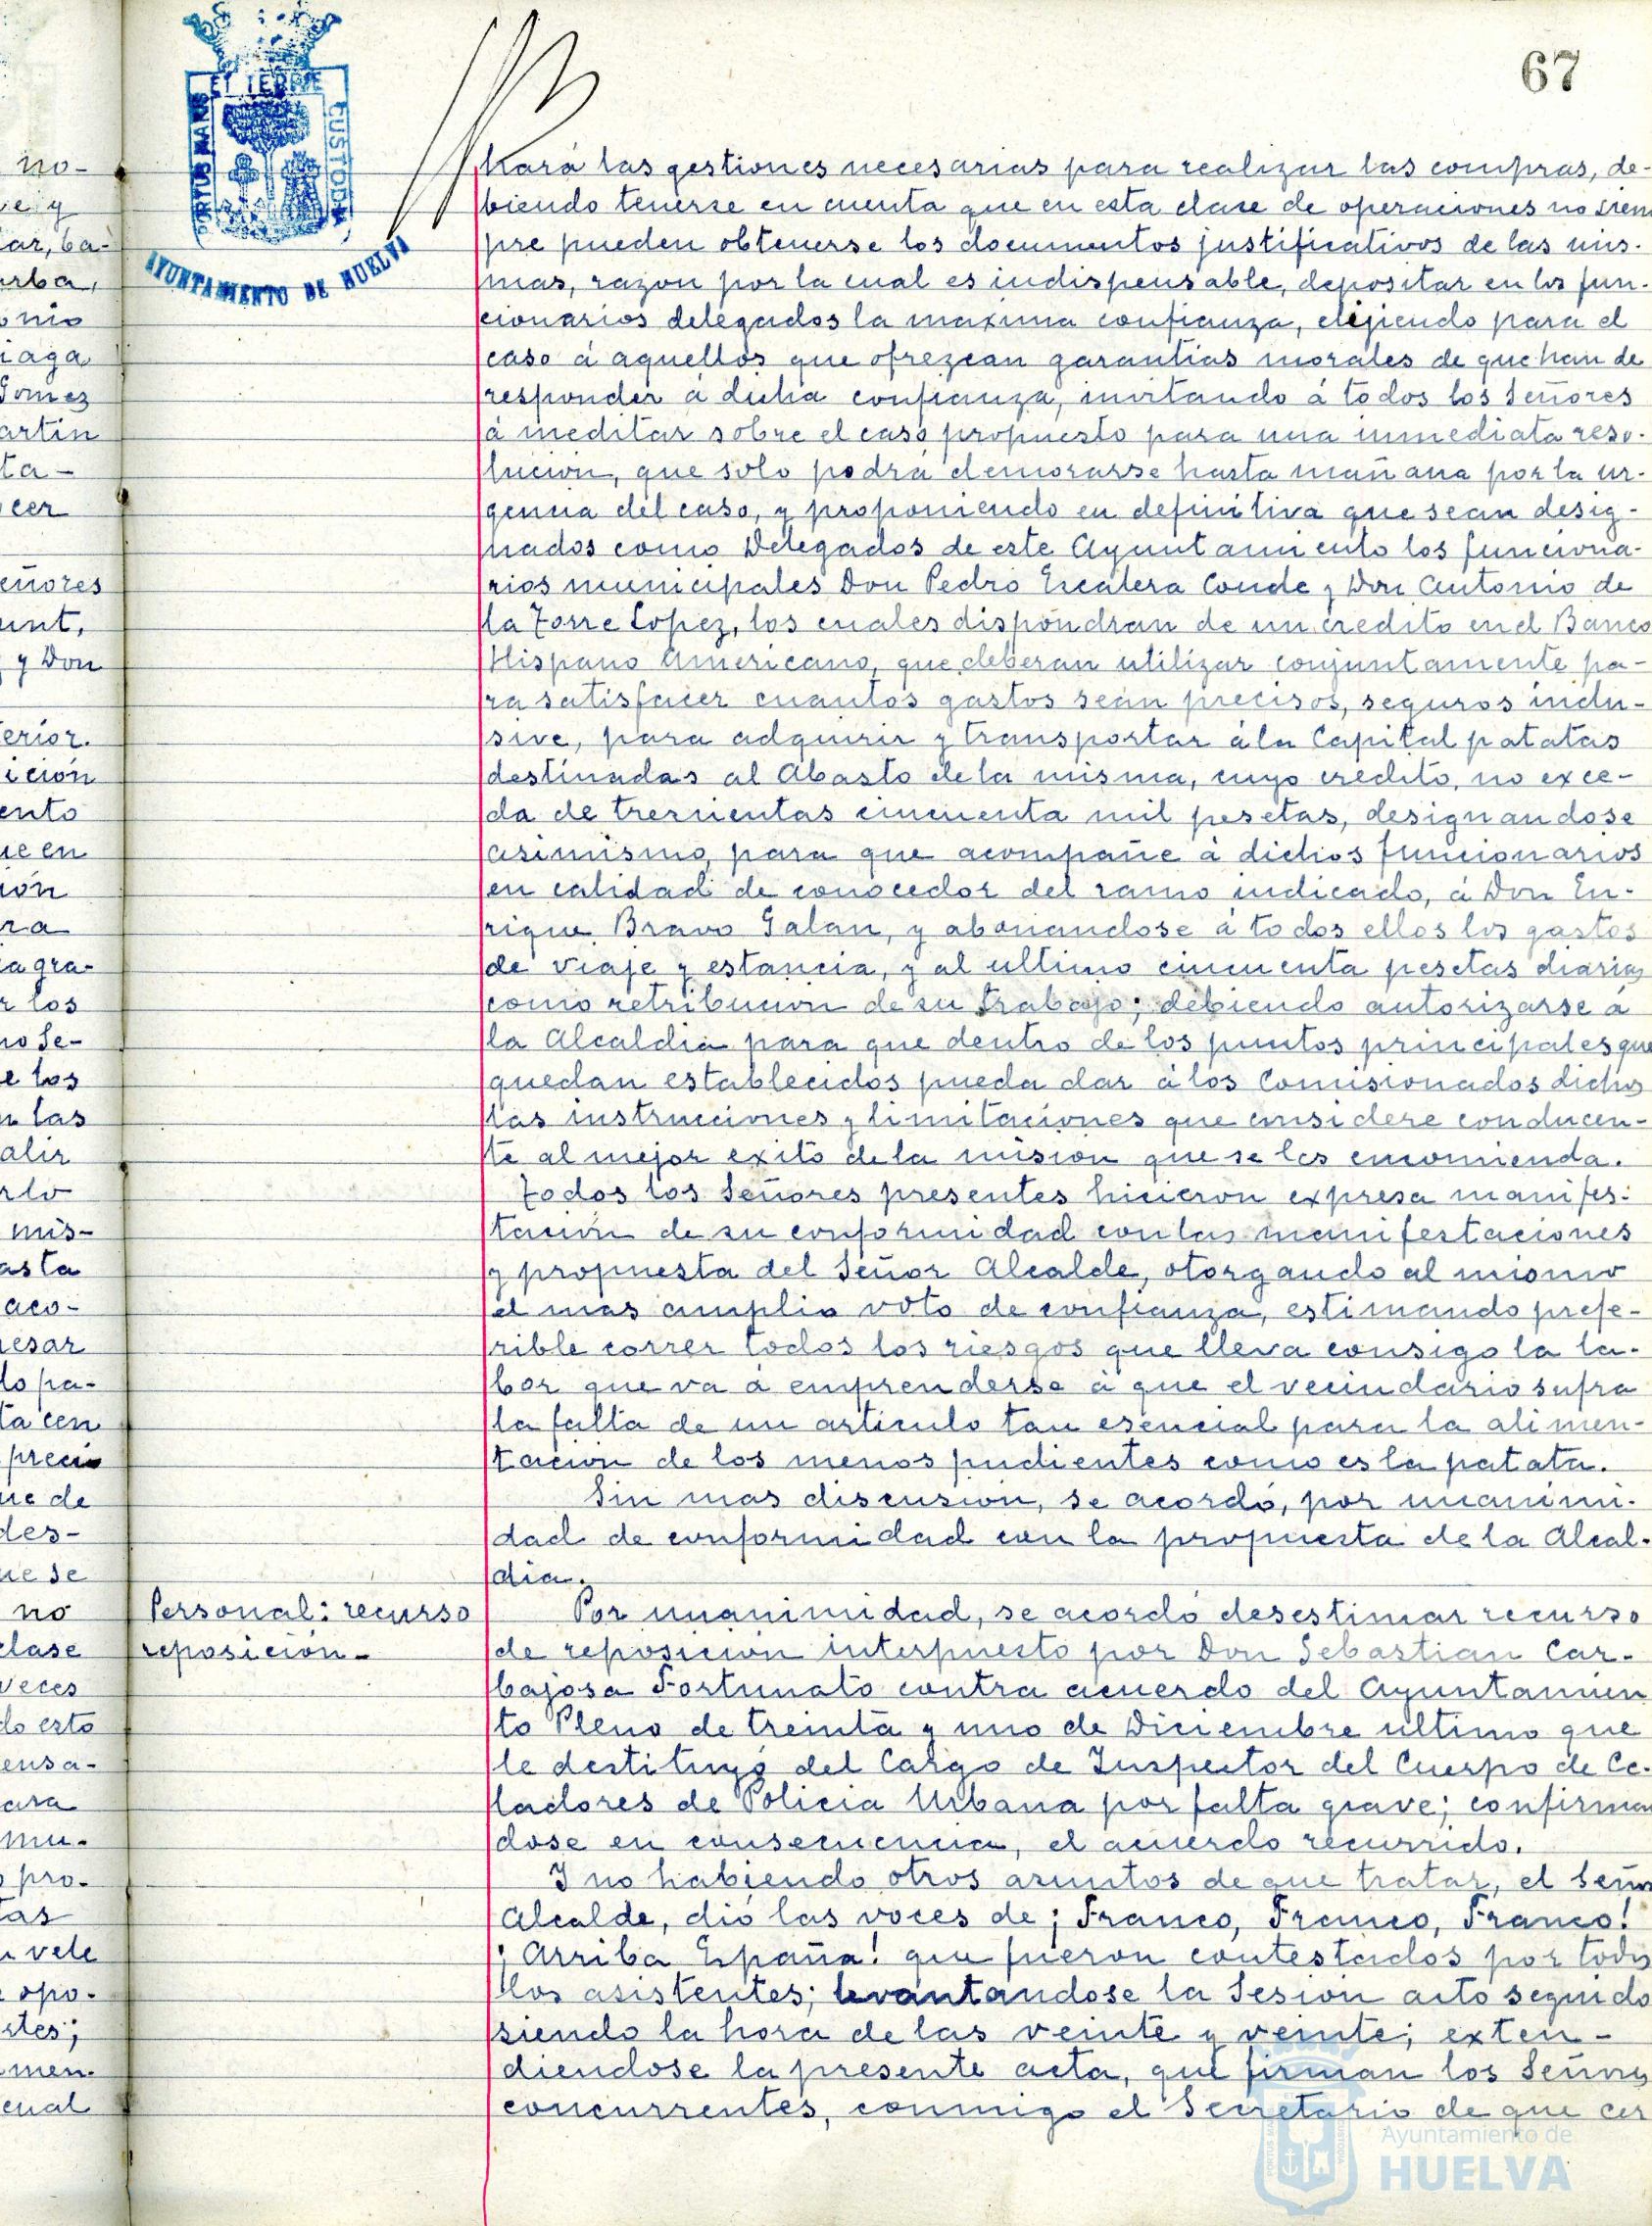 67
PORTUS MARIS ET TERRE CUSTODIA
AYUNTAMIENTO DE HUELVA
hará las gestiones necesarias para realizar las compras, de-
biendo tenerse en cuenta que en esta clase de operaciones no siem
pre pueden obtenerse los documentos justificativos de las mis-
mas, razon por la cual es indispensable, depositar en los fun-
cionarios delegados la maxima confianza, elijiendo para el
caso á aquellos que ofrezcan garantias morales de que han de
responder á dicha confianza, invitando á todos los Señores
á meditar sobre el caso propuesto para una inmediata reso-
lución, que solo podrá demorarse hasta mañana por la ur-
gencia del caso, y proponiendo en definitiva que sean desig-
nados como Delegados de este Ayuntamiento los funciona-
rios municipales Don Pedro Escalera Conde y Don Antonio de
la Torre Lopez, los cuales dispondran de un credito en el Banco
Hispano Americano, que deberan utilizar conjuntamente pa-
ra satisfacer cuantos gastos sean precisos, seguros inclu-
sive, para adquirir y transportar á la Capital patatas
destinadas al Abasto de la misma, cuyo credito, no exce-
da de trescientas cincuenta mil pesetas, designandose
asimismo, para que acompañe á dichos funcionarios
en calidad de conocedor del ramo indicado, á Don En-
rique Bravo Galan, y abonandose á todos ellos los gastos
de viaje y estancia, y al ultimo cincuenta pesetas diarias
como retribucion de su trabajo; debiendo autorizarse á
la Alcaldia para que dentro de los puntos principales que
quedan establecidos pueda dar á los Comisionados dichos
las instrucciones y limitaciones que considere conducen-
te al mejor exito de la mision que se les encomienda.
Todos los Señores presentes hicieron expresa manifes-
tación de su conformidad con las manifestaciones
y propuesta del Señor Alcalde, otorgando al mismo
el mas amplio voto de confianza, estimando prefe-
rible correr todos los riesgos que lleva consigo la la-
bor que va á emprenderse á que el vecindario sufra
la falta de un articulo tan esencial para la alimen-
tacion de los menos pudientes como es la patata.
Sin mas discusion, se acordó, por unanimi-
dad de conformidad con la propuesta de la Alcal-
dia.
Personal: recurso
reposición-
Por unanimidad, se acordó desestimar recurso
de reposicion interpuesto por Don Sebastian Car-
bajosa Fortunato contra acuerdo del Ayuntamien
to Pleno de treinta y uno de Diciembre ultimo que
le destituyó del Cargo de Inspector del Cuerpo de Ce-
ladores de Policia Urbana por falta grave; confirman
dose en consecuencia, el acuerdo recurrido.
Y no habiendo otros asuntos de que tratar, el Señor
Alcalde, dió las voces de ¡Franco, Franco, Franco!
¡Arriba España! que fueron contestados por todos
los asistentes; levantandose la Sesion acto seguido
siendo la hora de las veinte y veinte; exten-
diendose la presente acta, que firman los Señores
concurrentes, conmigo el Secretario de que cer
Ayuntamiento de
HUELVA